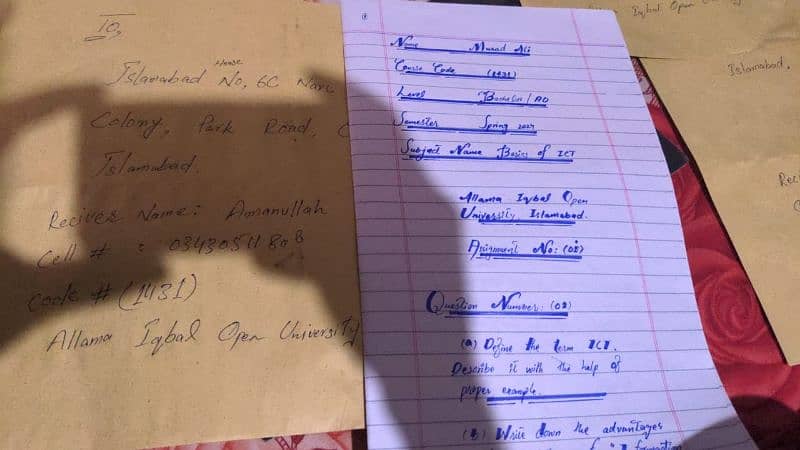 To,
House
Islamabad No, 6C Nave
Colony, Park Road,
Islamabad.
Reciver Name: Amanullah
Cell # : 03430511808
Code # (1431)
Allama Iqbal Open University
Name Murad Ali
Course Code (1431)
Level Bachelor/AD
Semester Spring 2024
Subject Name Basics of ICT
Allama Iqbal Open
University, Islamabad.
Assignment No: (02)
Question Number: (02)
(a) Define the term ICT.
Describe it with the help of
proper example.
(b) Write down the advantages
of
Iqbal Open
Islamabad,
Reci